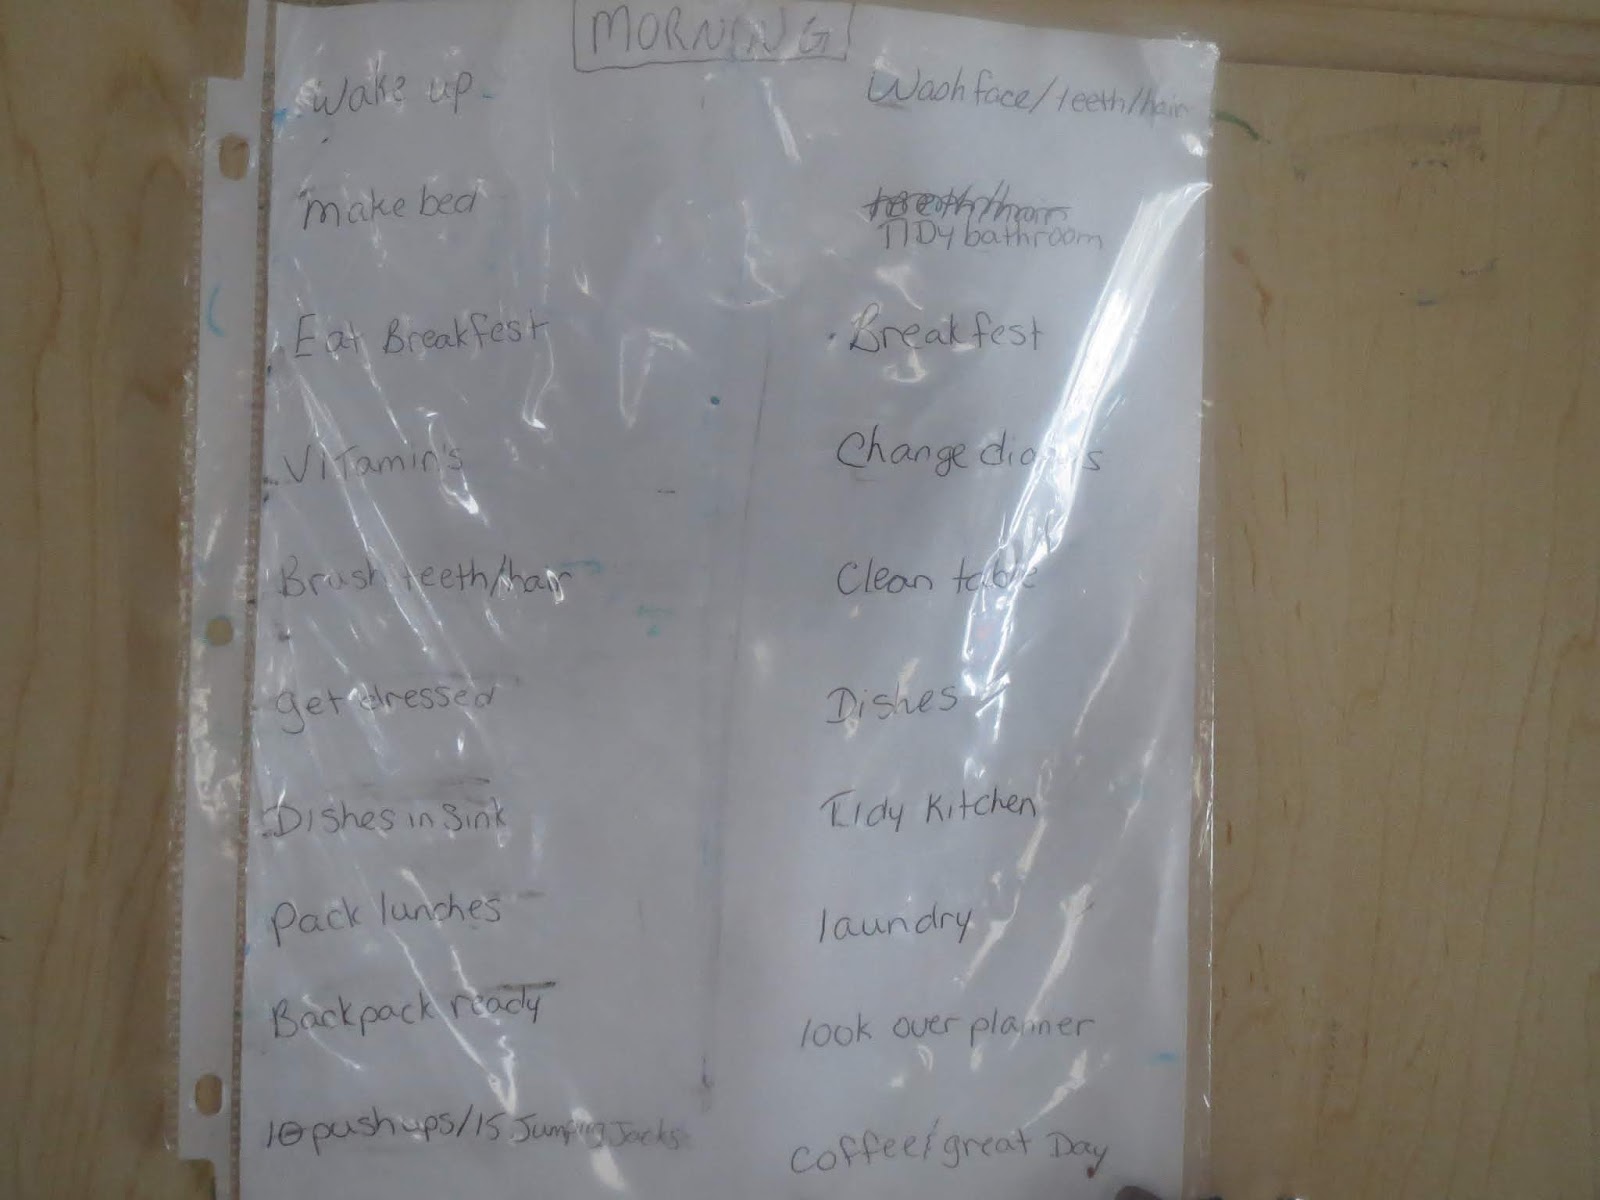 MORNING
Wake up
make bed
Eat Breakfest
Vitamin's
Brush teeth/hair
get dressed
Dishes in Sink
Pack lunches
Backpack ready
10 pushups/15 Jumping Jacks
Wash face/teeth/hair
teeth/hair
TIDy bathroom
Breakfest
Change
Clean table
Dishes
Tidy Kitchen
laundry
look over planner
Coffee/great Day